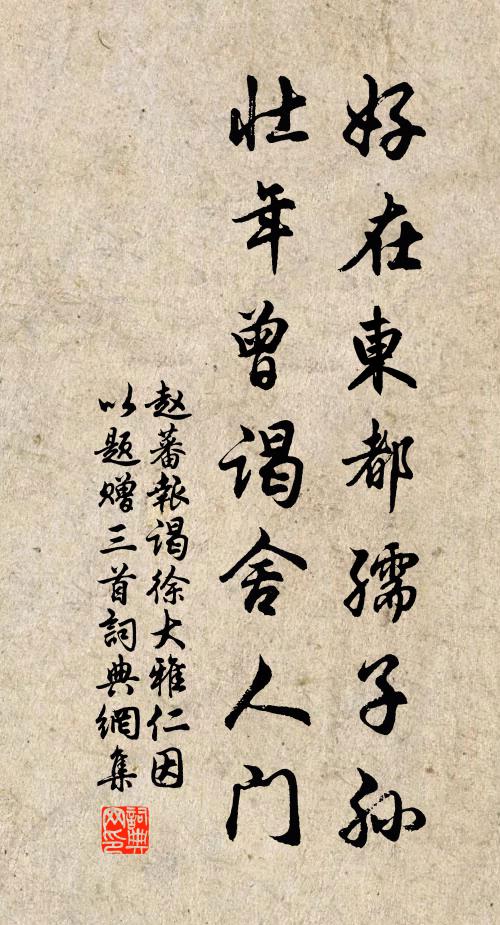 好在東都孺子孙
壮年曾谒舍人门
赵蕃報谒徐大雅仁因
以题赠三首詞典網集
詞典
网印